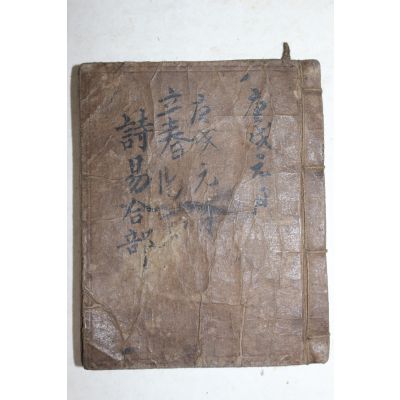 庚戌元月
庚戌元月
立春
詩易合部